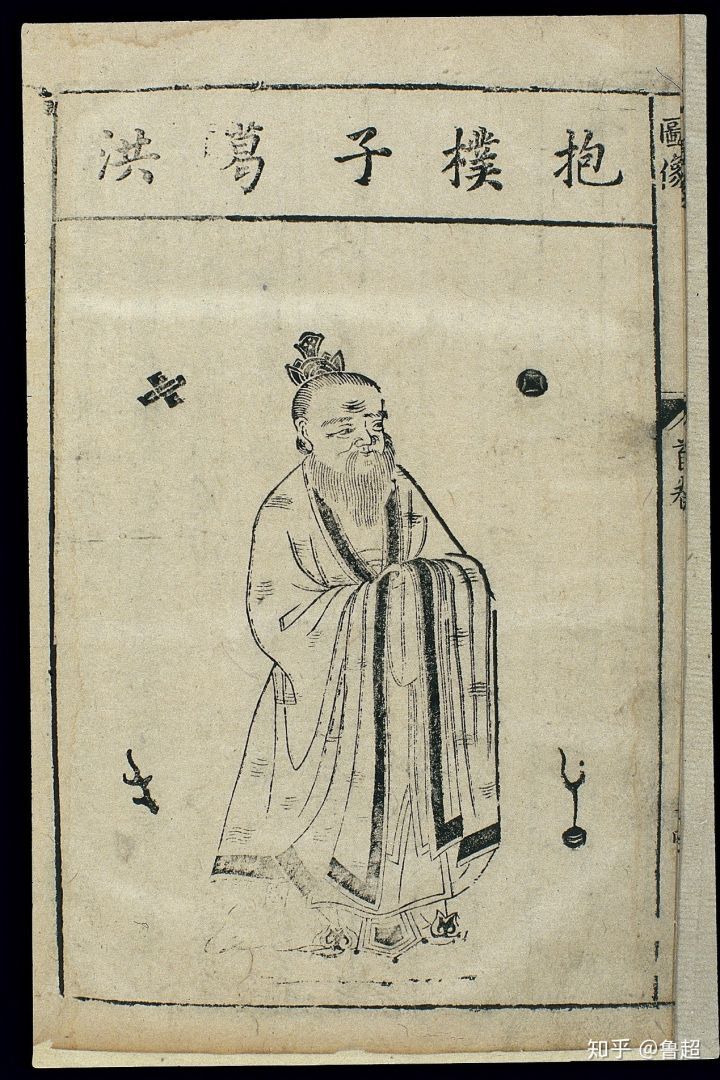 抱樸子葛洪
圖像
首卷
知乎 @鲁超